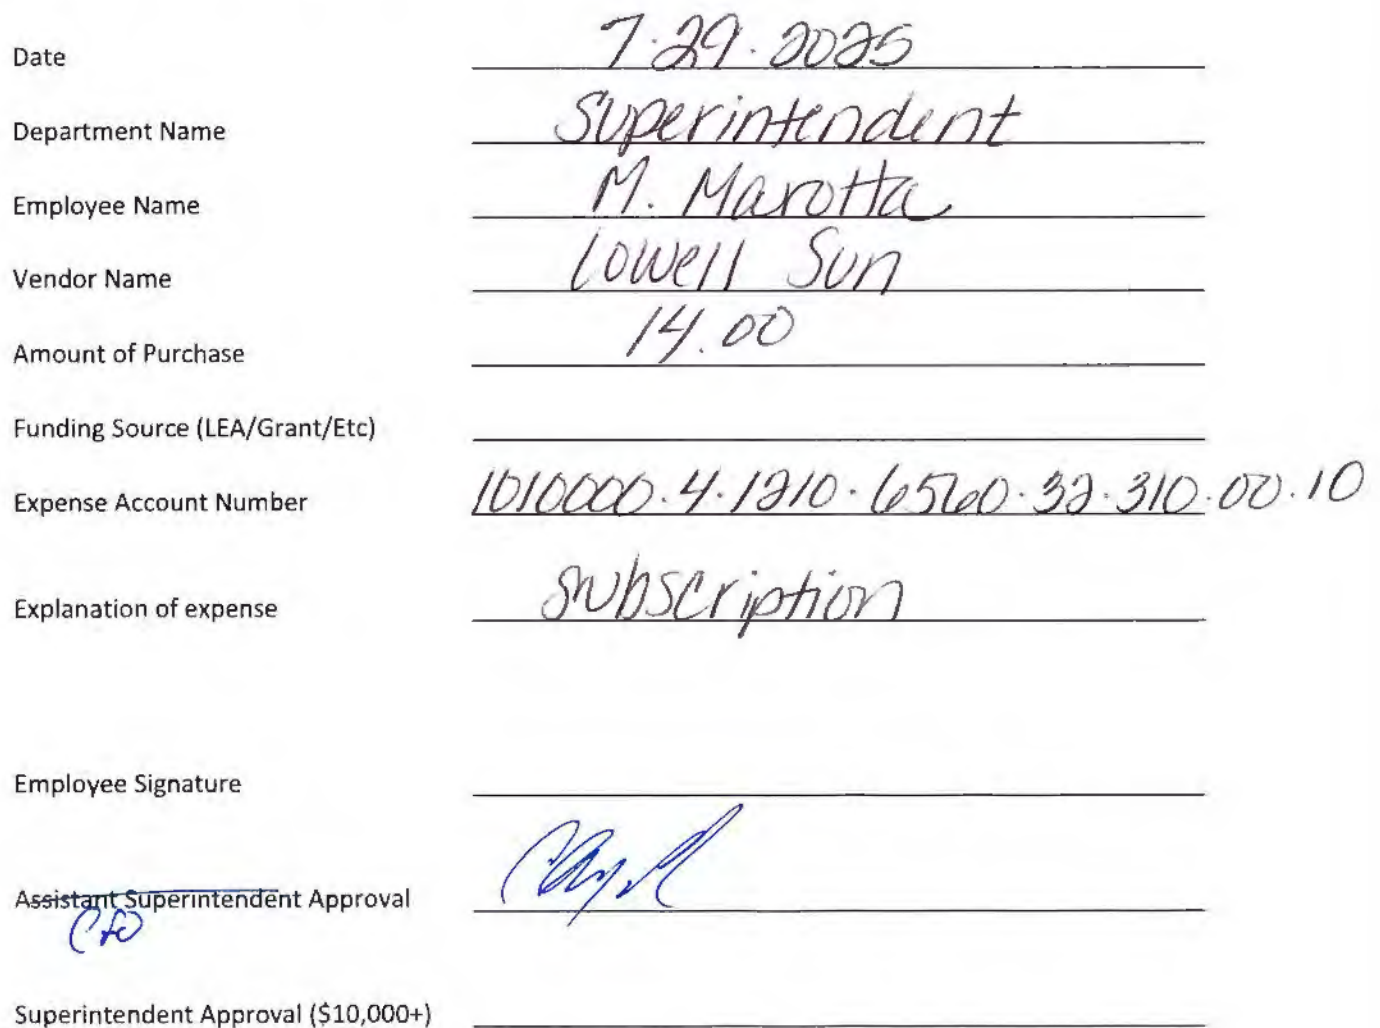 Date 7.29.2025
Department Name Superintendent
Employee Name M. Marotta
Vendor Name Lowell Sun
Amount of Purchase 14.00
Funding Source (LEA/Grant/Etc)
Expense Account Number 1010000.4.1210.6560.32.310.00.10
Explanation of expense subscription
Employee Signature
Assistant Superintendent Approval
CFO
Superintendent Approval ($10,000+)